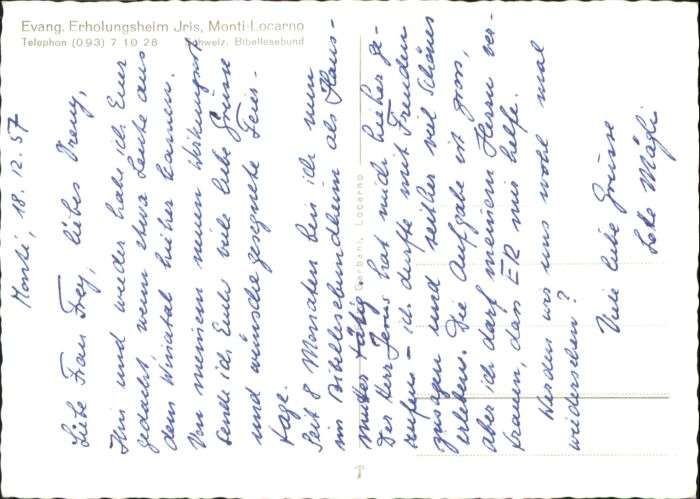 Evang. Erholungsheim Jris, Monti-Locarno
Telephon (093) 7 10 28 Schweiz. Bibellesebund
Monti, 18.12.57
Liebe Frau Frey, liebes Vreny,
Hin und wieder habe ich Euer
gedacht, wenn etwa Leute aus
dem Winatal hieher kamen.
Von meinem neuen Wirkungsort
sende ich Euch viele liebe Grüsse
und wünsche gesegnete Feier-
tage.
Seit 8 Monaten bin ich nun
im Bibellesebundheim als Haus-
mutter tätig.
Der Herr Jesus hat mich hieher ge-
rufen – ich durfte mit Freuden
zusagen und seither viel Schönes
erleben. Die Aufgabe ist gross,
aber ich darf meinem Herrn ver-
trauen, dass ER mir helfe.
Werden wir uns wohl mal
wiedersehen?
Viele liebe Grüsse
Mägli
Garbani, Locarno